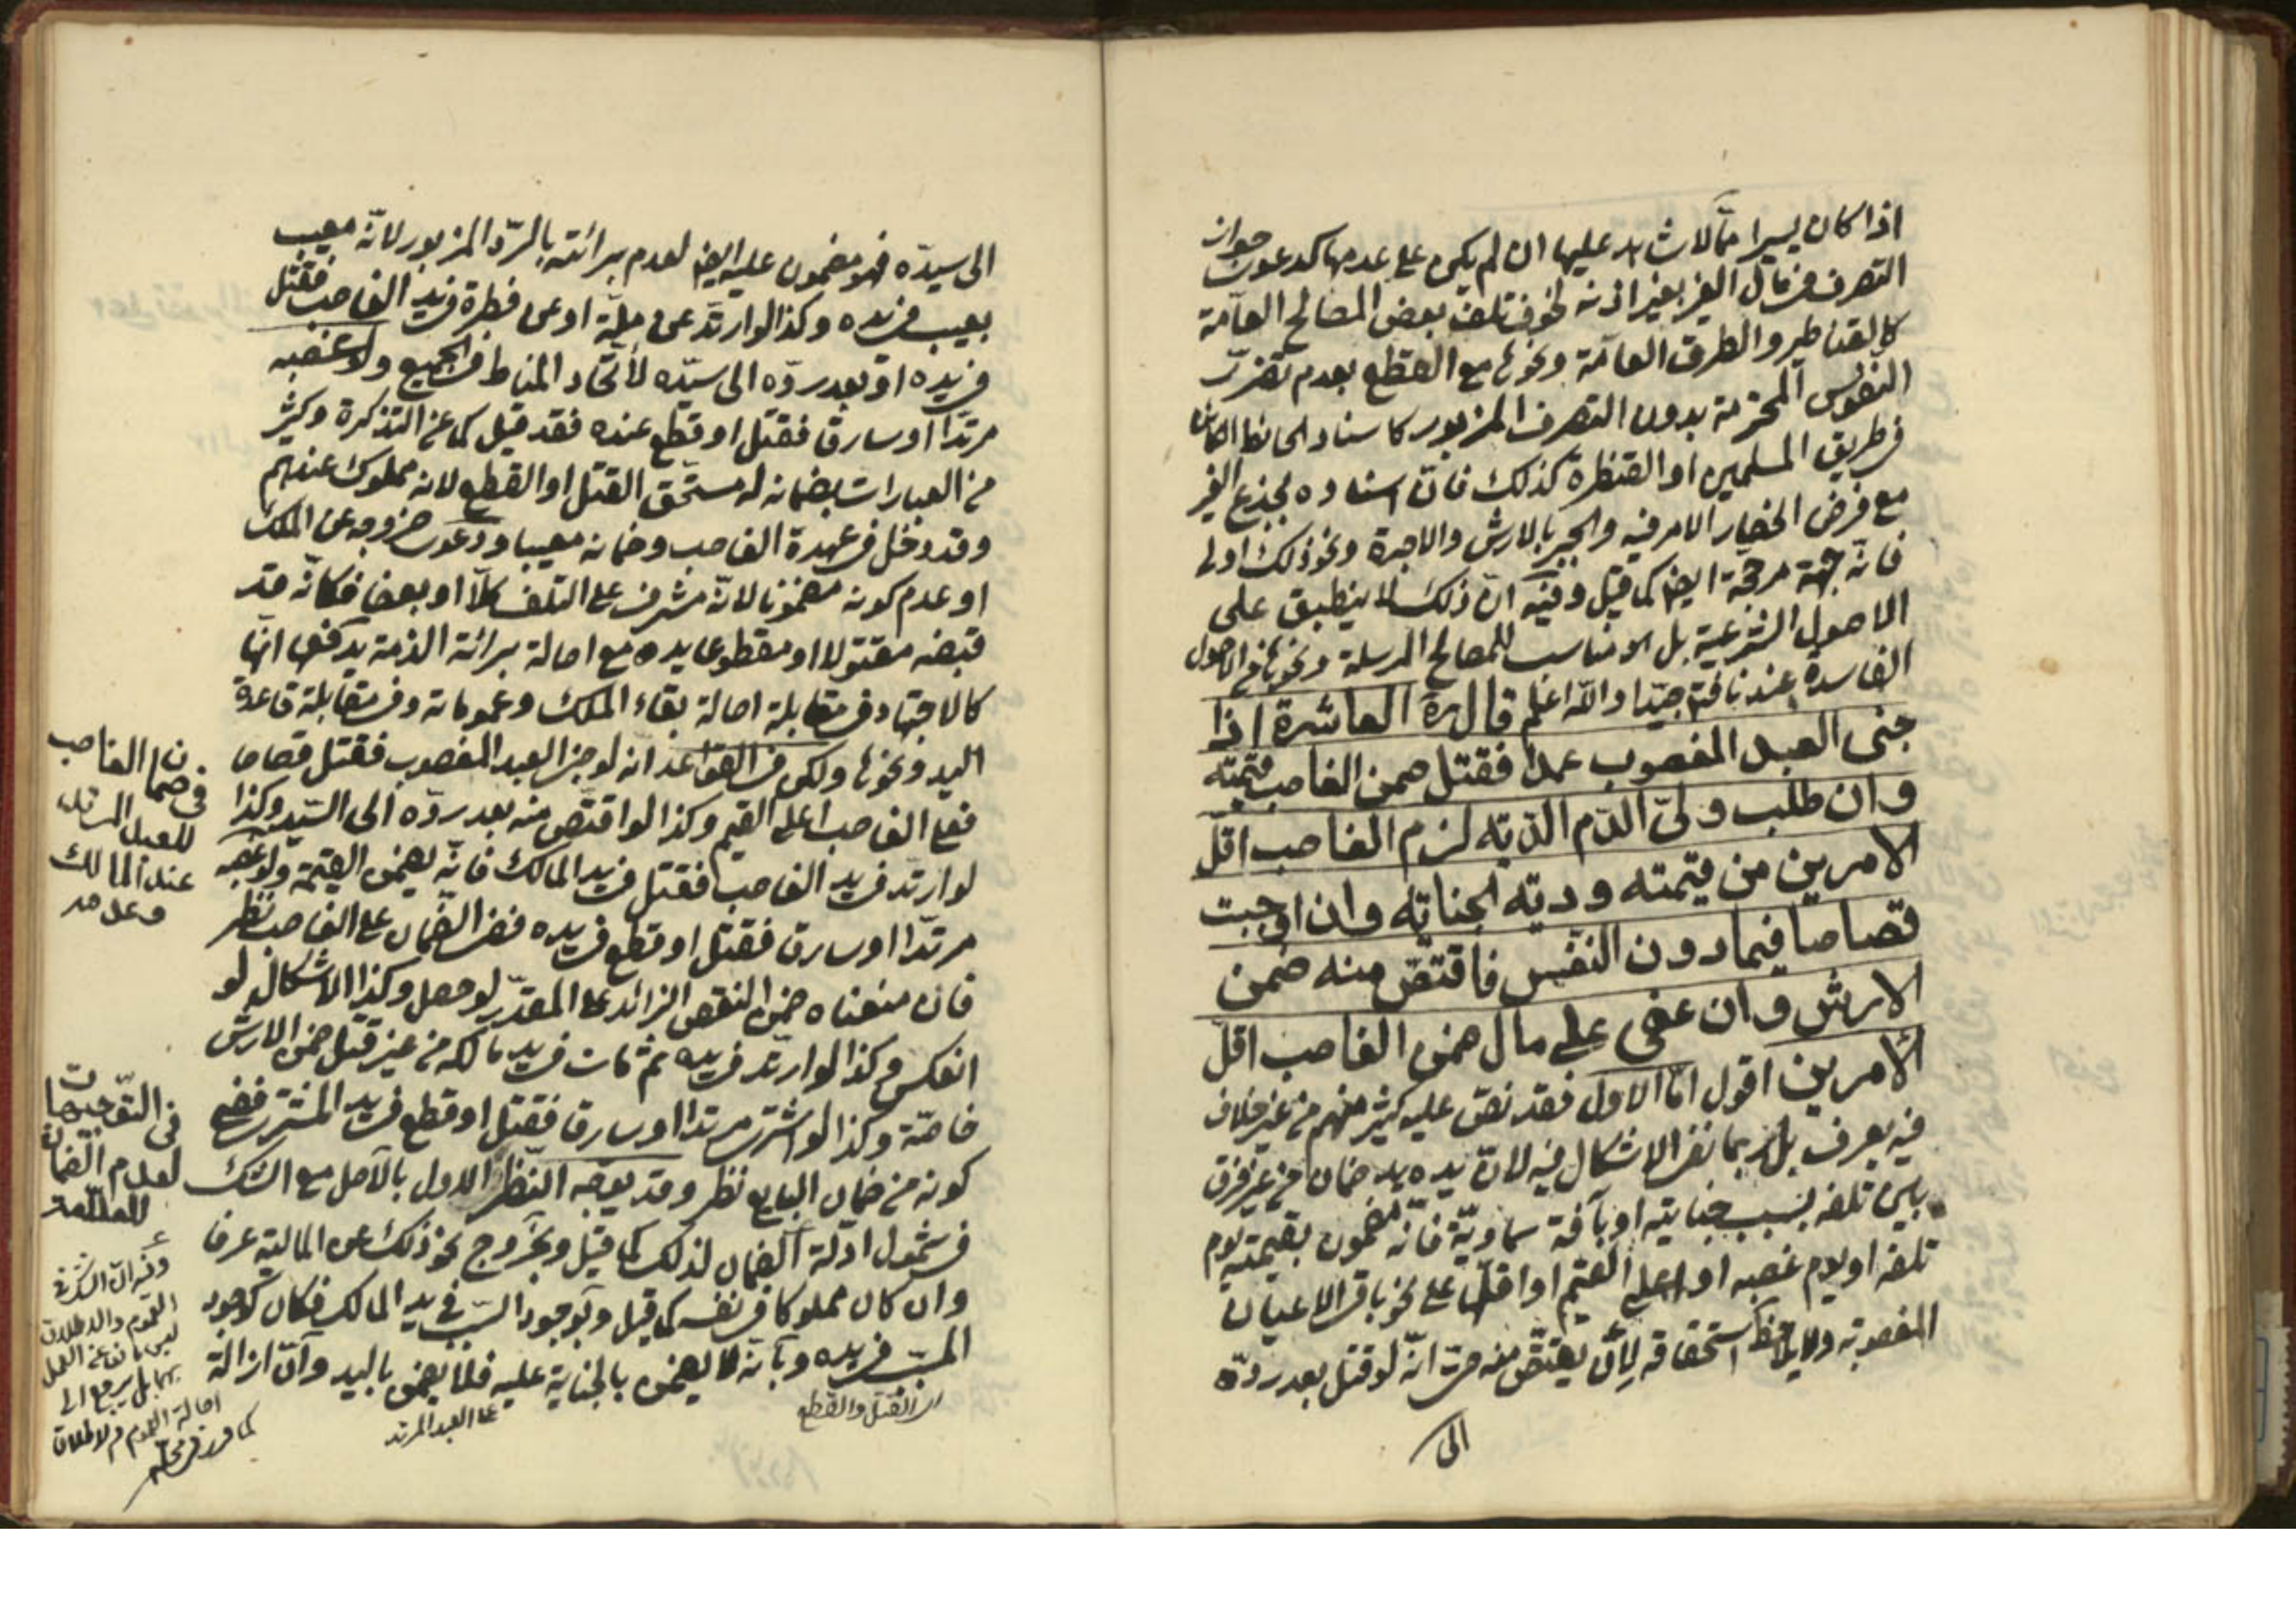 اذا كان يسيرا مما لا شاهد عليها ان لم يكن على عدمها كدعوى جواز
التصرف في مال الغير بغير اذنه لخوف تلف بعض المصالح العامة
كالقناطير والطرق العامة ونحوها مع القطع بعدم تضرر
النفوس المحترمة بدون التصرف المزبور كاسناد الحائط الكائن
في طريق المسلمين او القنطرة كذلك فان اسناده بجذع الغير
مع فرض انحصار الامر فيه والجبر بالارش والاجرة ونحو ذلك اولى
فانه جهة مرجحة ايضا كما قيل وفيه ان ذلك لا ينطبق على
الاصول الشرعية بل الا مناسب للمصالح المرسلة ونحوها من الاصول
الفاسدة عندنا فتم جيدا والله اعلم قال ره العاشرة اذا
جنى العبد المغصوب عمدا فقتل ضمن الغاصب قيمته
وان طلب ولي الدم الدية لزم الغاصب اقل
الامرين من قيمته ودية الجناية وان اوجبت
قصاصا فيما دون النفس فاقتص منه ضمن
الارش وان عفى على مال ضمن الغاصب اقل
الامرين اقول اما الاول فقد نص عليه كثير منهم من غير خلاف
فيه يعرف بل ربما نفى الاشكال فيه لان يده يد ضمان من غير فرق
بين تلفه بسبب جنايته او بآفة سماوية فانه مضمون بقيمته يوم
تلفه او يوم غصبه او اعلى القيم او اقلها على نحو باقي الاعيان
المغصوبة ولا يلاحظ استحقاقه لان يقتص منه حتى انه لو قتل بعد رده
الى
الى سيده فهو مضمون عليه ايضا لعدم برائته بالرد المزبور لانه معيب
بعيب في يده وكذا لو ارتد عن ملة او عن فطرة في يد الغاصب فقتل
في يده او بعد رده الى سيده لاتحاد المناط في الجميع ولو غصبه
مرتدا او سارقا فقتل او قطع عنده فقد قيل كما عن التذكرة وكثير
من العبارات بضمانه له مستحق القتل او القطع لانه مملوك عندهم
وقد دخل في عهدة الغاصب وضمانه معيبا ودعوى خروجه عن الملك
او عدم كونه مضمونا لانه مشرف على التلف كلا او بعضا فكانه قد
قبضه مقتولا او مقطوعا يده مع اصالة برائة الذمة يدفعها انها
كالاجتهاد في مقابلة اصالة بقاء الملك وعموماته وفي مقابلة قاعدة
اليد ونحوها ولكن في القواعد انه لو جنى العبد المغصوب فقتل قصاصا
فعلى الغاصب اعلى القيم وكذا لو اقتص منه بعد رده الى السيد وكذا
لو ارتد في يد الغاصب فقتل في يد المالك فانه يضمن القيمة ولو غصبه
مرتدا او سارقا فقتل او قطع في يده ففي الضمان على الغاصب نظر
فان منعناه ضمن النقص الزائد على المقدر لو حصل وكذا الاشكال لو
انعكس وكذا لو ارتد في يده ثم مات في يد مالكه من غير قتل ضمن الارش
خاصة وكذا لو اشترى مرتدا او سارقا فقتل او قطع في يد المشتري ففي
كونه من ضمان البايع نظر وقد يوجه النظر الاول بالاصل مع الشك
في شمول ادلة الضمان لذلك كما قيل وبخروج نحو ذلك عن المالية عرفا
وان كان مملوكا في نفسه كما قيل وبوجود السبب في يد المالك فكان كوجود
المسبب في يده وبانه لا يضمن بالجناية عليه فلا يضمن باليد وان ازالة
اى القتل والقطع
على العبد المرتد
في ضمان الغاصب
للعبد المرتد
عند المالك
وعدمه
في التوجيهات
لعدم الضمان
وفيه ان الشك في
العموم والاطلاق
ليس مانعا عن العمل
بهما بل يرجع الى
اصالة العموم والاطلاق
كما قرر في محله